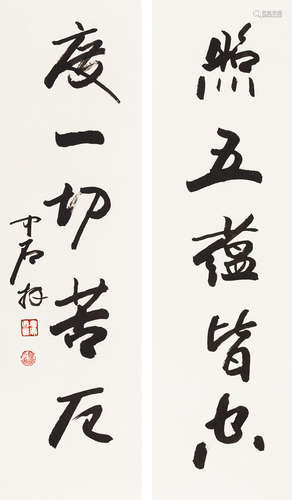 照五蕴皆空
度一切苦厄
中石拜